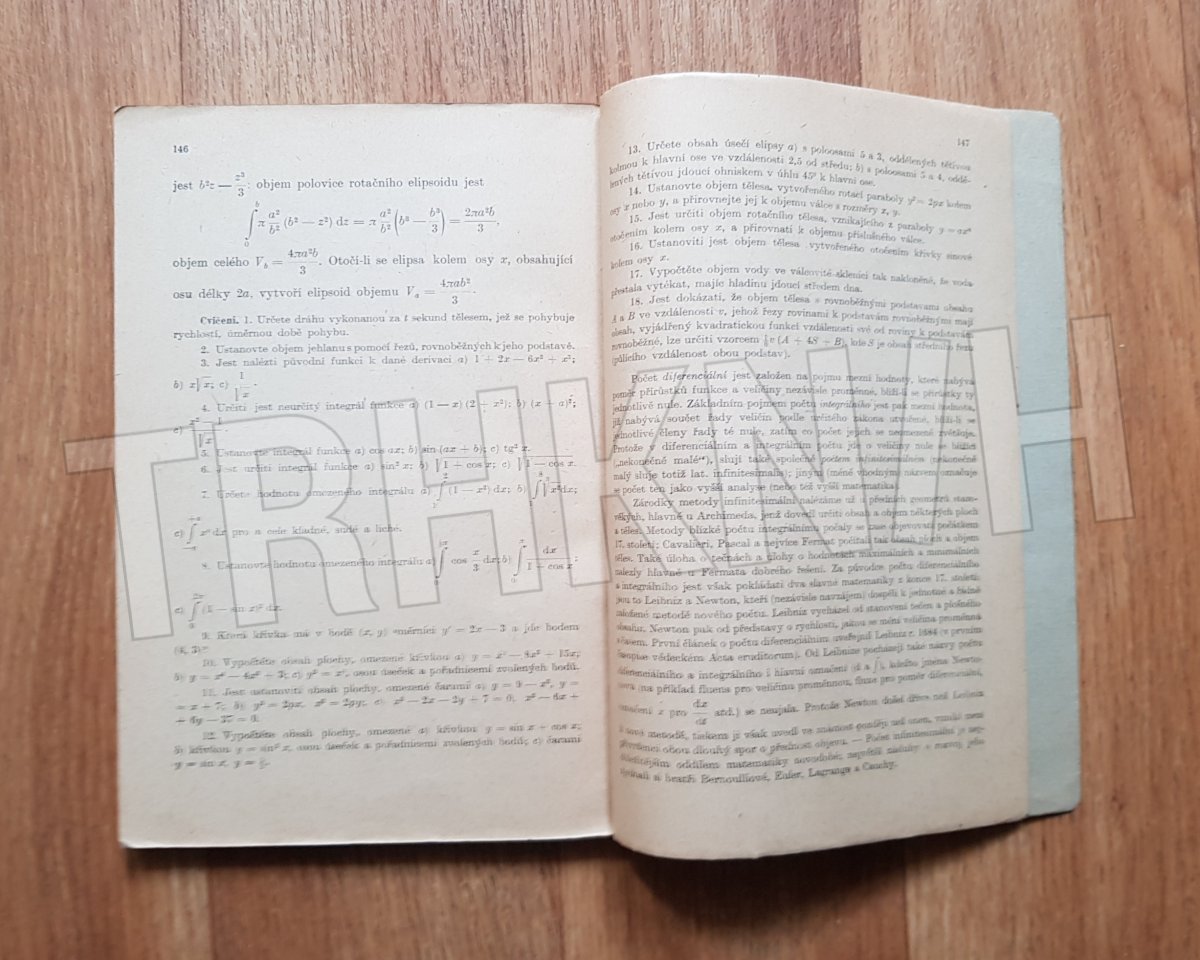 146
jest b²z — z³/3; objem polovice rotačního elipsoidu jest
∫₀ᵇ π a²/b² (b² — z²) dz = π a²/b² (b³ — b³/3) = 2πa²b/3,
objem celého V_b = 4πa²b/3. Otočí-li se elipsa kolem osy x, obsahující
osu délky 2a, vytvoří elipsoid objemu V_a = 4πab²/3.
Cvičení. 1. Určete dráhu vykonanou za t sekund tělesem, jež se pohybuje
rychlostí, úměrnou době pohybu.
2. Ustanovte objem jehlanu s pomocí řezů, rovnoběžných k jeho podstavě.
3. Jest nalézti původní funkci k dané derivaci a) 1 + 2x — 6x² + x³;
b) x√x; c) 1/√x.
4. Určiti jest neurčitý integrál funkce a) (1 — x) (2 + x²); b) (x + a)²;
5. Ustanovte integrál funkce a) cos ax; b) sin (ax + b); c) tg² x.
6. Jest určiti integrál funkce a) sin² x; b) √1 + cos x; c) √1 — cos x.
7. Určete hodnotu omezeného integrálu a) ∫ (1 — x²) dx; b)
c) ∫ xⁿ dx pro n celé kladné, sudé a liché.
8. Ustanovte hodnotu omezeného integrálu a) ∫ cos x/3 dx; b) ∫ dx/1 + cos x;
c) ∫ (1 — sin x)² dx.
9. Která křivka má v bodě (x, y) směrnici y' = 2x — 3 a jde bodem
(4, 3)?
10. Vypočtěte obsah plochy, omezené křivkou a)
osou úseček a pořadnicemi zvolených bodů.
11. Jest ustanoviti obsah plochy, omezené čarami a) y = 9 — x², y =
= x + 7; b) y² = 2px, x² = 2py; c) x² — 2x — 2y + 7 = 0,
12. Vypočtěte obsah plochy, omezené a) křivkou y = sin x + cos x;
b) křivkou y = sin² x, osou úseček a pořadnicemi zvolených bodů; c) čarami
y = sin x,
147
13. Určete obsah úsečí elipsy a) s poloosami 5 a 3, oddělených tětivou
kolmou k hlavní ose ve vzdálenosti 2,5 od středu; b) s poloosami 5 a 4, oddě-
lených tětivou jdoucí ohniskem v úhlu 45° k hlavní ose.
14. Ustanovte objem tělesa, vytvořeného rotací paraboly y² = 2px kolem
osy x nebo y, a přirovnejte jej k objemu válce s rozměry x, y.
15. Jest určiti objem rotačního tělesa, vznikajícího z paraboly y = axⁿ
otočením kolem osy x, a přirovnati k objemu příslušného válce.
16. Ustanoviti jest objem tělesa vytvořeného otočením křivky sinové
kolem osy x.
17. Vypočtěte objem vody ve válcovité sklenici tak nakloněné, že voda
přestala vytékat, majíc hladinu jdoucí středem dna.
18. Jest dokázati, že objem tělesa s rovnoběžnými podstavami obsahu
A a B ve vzdálenosti v, jehož řezy rovinami k podstavám rovnoběžnými mají
obsah, vyjádřený kvadratickou funkcí vzdálenosti své od roviny k podstavám
rovnoběžné, lze určiti vzorcem ⅙ v (A + 4S + B), kde S je obsah středního řezu
(půlícího vzdálenost obou podstav).
Počet diferenciální jest založen na pojmu mezní hodnoty, které nabývá
poměr přírůstků funkce a veličiny nezávisle proměnné, blíží-li se přírůstky ty
jednotlivě nule. Základním pojmem počtu integrálního jest pak mezní hodnota,
již nabývá součet řady veličin podle určitého zákona utvořené, blíží-li se
jednotlivé členy řady té nule, zatím co počet jejich se neomezeně zvětšuje.
Protože v diferenciálním a integrálním počtu jde o veličiny nule se blížící
(„nekonečně malé“), slují také společně počtem infinitesimálním (nekonečně
malý sluje totiž lat. infinitesimalis); jiným (méně vhodným) názvem označuje
se počet ten jako vyšší analyse (nebo též vyšší matematika).
Zárodky metody infinitesimální nalézáme už u předních geometrů staro-
věkých, hlavně u Archimeda, jenž dovedl určiti obsah a objem některých ploch
a těles. Metody blízké počtu integrálnímu počaly se zase objevovati počátkem
17. století; Cavalieri, Pascal a nejvíce Fermat počítali tak obsah ploch a objem
těles. Také úloha o tečnách a úlohy o hodnotách maximálních a minimálních
nalezly hlavně u Fermata dobrého řešení. Za původce počtu diferenciálního
a integrálního jest však pokládati dva slavné matematiky z konce 17. století;
jsou to Leibniz a Newton, kteří (nezávisle navzájem) dospěli k jednotné a řádně
založené metodě nového počtu. Leibniz vycházel od stanovení tečen a plošného
obsahu, Newton pak od představy o rychlosti, jakou se mění veličina proměnná
s časem. První článek o počtu diferenciálním uveřejnil Leibniz r. 1684 (v prvním
časopise vědeckém Acta eruditorum). Od Leibnize pocházejí také názvy počtu
diferenciálního a integrálního i hlavní označení (d a ∫), kdežto jména Newto-
nova (na příklad fluens pro veličinu proměnnou, fluxe pro poměr diferenciální,
označení ẋ pro dx/dz atd.) se neujala. Protože Newton došel dříve než Leibniz
k nové metodě, tiskem ji však uvedl ve známost později než onen, vznikl mezi
přívrženci obou dlouhý spor o přednost objevu. — Počet infinitesimální je nej-
důležitějším oddílem matematiky novodobé; největší zásluhy o rozvoj jeho
získali si bratři Bernoulliové, Euler, Lagrange a Cauchy.
TRHKNIH